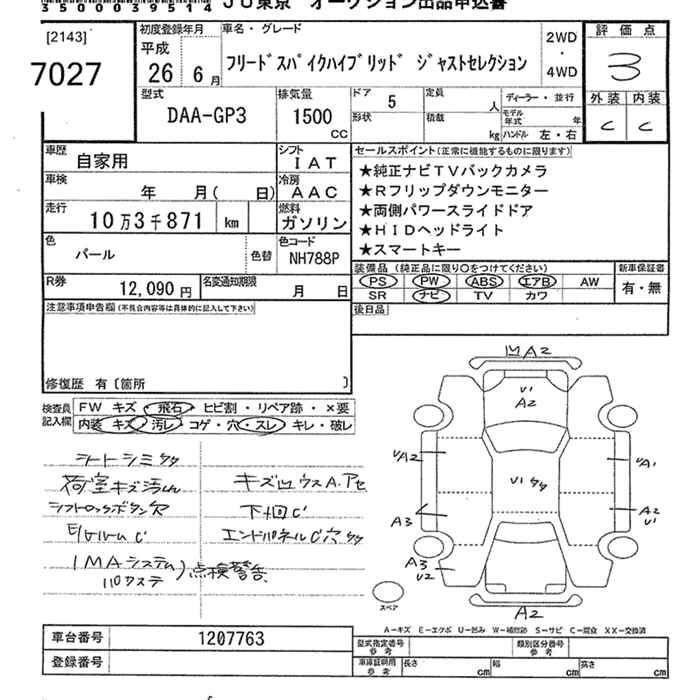 35000039514 JU東京 オークション出品申込書
[2143]
7027
初度登録年月
平成
26 6月
車名・グレード
フリードスパイクハイブリッド ジャストセレクション
2WD
・
4WD
評価点
3
型式
DAA-GP3
排気量
1500
CC
ドア 5
形状
定員
人
積載
kg
ディーラー・並行
モデル年式 年
ハンドル 左・右
外装 内装
C C
車歴 自家用
シフト IAT
車検 年 月( 日)
冷房 AAC
走行 10万3千871 km
燃料 ガソリン
色 パール
色替
色コード NH788P
R券 12,090円
名変通知期限 月 日
セールスポイント(正常に機能するものに限ります)
★純正ナビTVバックカメラ
★Rフリップダウンモニター
★両側パワースライドドア
★HIDヘッドライト
★スマートキー
装備品 (純正品に限り○をつけてください)
PS PW ABS エアB AW
SR ナビ TV カワ
新車保証書
有・無
後日品
注意事項申告欄(不具合内容等は具体的に記入して下さい)
修復歴 有〔箇所 〕
検査員記入欄
FW キズ・飛石・ヒビ割・リペア跡・×要
内装 キズ・汚レ・コゲ・穴・スレ・キレ・破レ
シートシミタタ
荷室キズ汚レ
シフトロックボタン穴
モールームC
IMAシステム
点検警告
キズ凹ウスA.アセ
下回C
エンドパネルC穴タタ
凹A2
V1
A2
VA2
V1タタ
VA1
A3
A2
V1
A3
V2
A2
スペア
A-キズ E-エクボ U-凹み W-補修跡 S-サビ C-腐食 XX-交換済
車台番号 1207763
登録番号
型式指定番号
参考
類別区分番号
参考
車庫証明用
参考
長さ cm
幅 cm
高さ cm